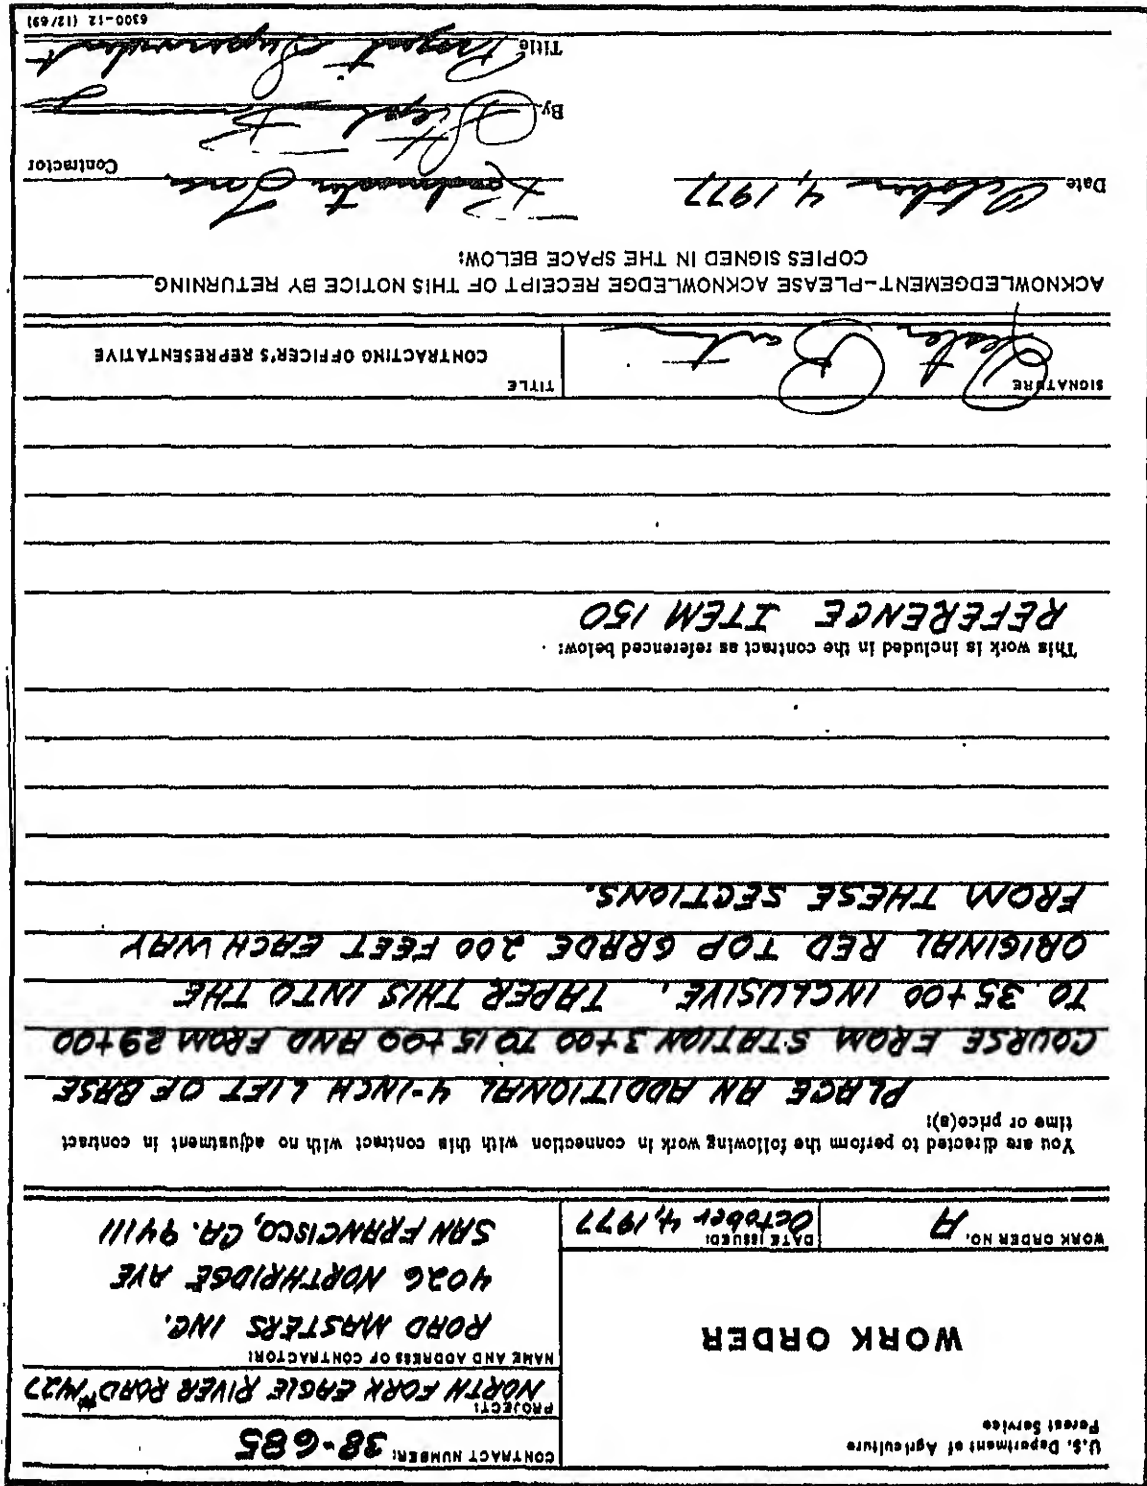 U.S. Department of Agriculture
Forest Service
WORK ORDER
WORK ORDER NO. A
DATE ISSUED: October 4, 1977
CONTRACT NUMBER: 38-685
PROJECT:
NORTH FORK EAGLE RIVER ROAD #1427
NAME AND ADDRESS OF CONTRACTOR:
ROAD MASTERS INC.
4026 NORTHRIDGE AVE
SAN FRANCISCO, CA. 94111
You are directed to perform the following work in connection with this contract with no adjustment in contract
time or price(s):
PLACE AN ADDITIONAL 4-INCH LIFT OF BASE
COURSE FROM STATION 3+00 TO 15+00 AND FROM 29+00
TO 35+00 INCLUSIVE. TAPER THIS INTO THE
ORIGINAL RED TOP GRADE 200 FEET EACH WAY
FROM THESE SECTIONS.
This work is included in the contract as referenced below:
REFERENCE ITEM 150
SIGNATURE
TITLE
CONTRACTING OFFICER'S REPRESENTATIVE
ACKNOWLEDGEMENT-PLEASE ACKNOWLEDGE RECEIPT OF THIS NOTICE BY RETURNING
COPIES SIGNED IN THE SPACE BELOW:
Date October 4, 1977
Contractor
By
Title Project Superintendent
6300-12 (12/69)